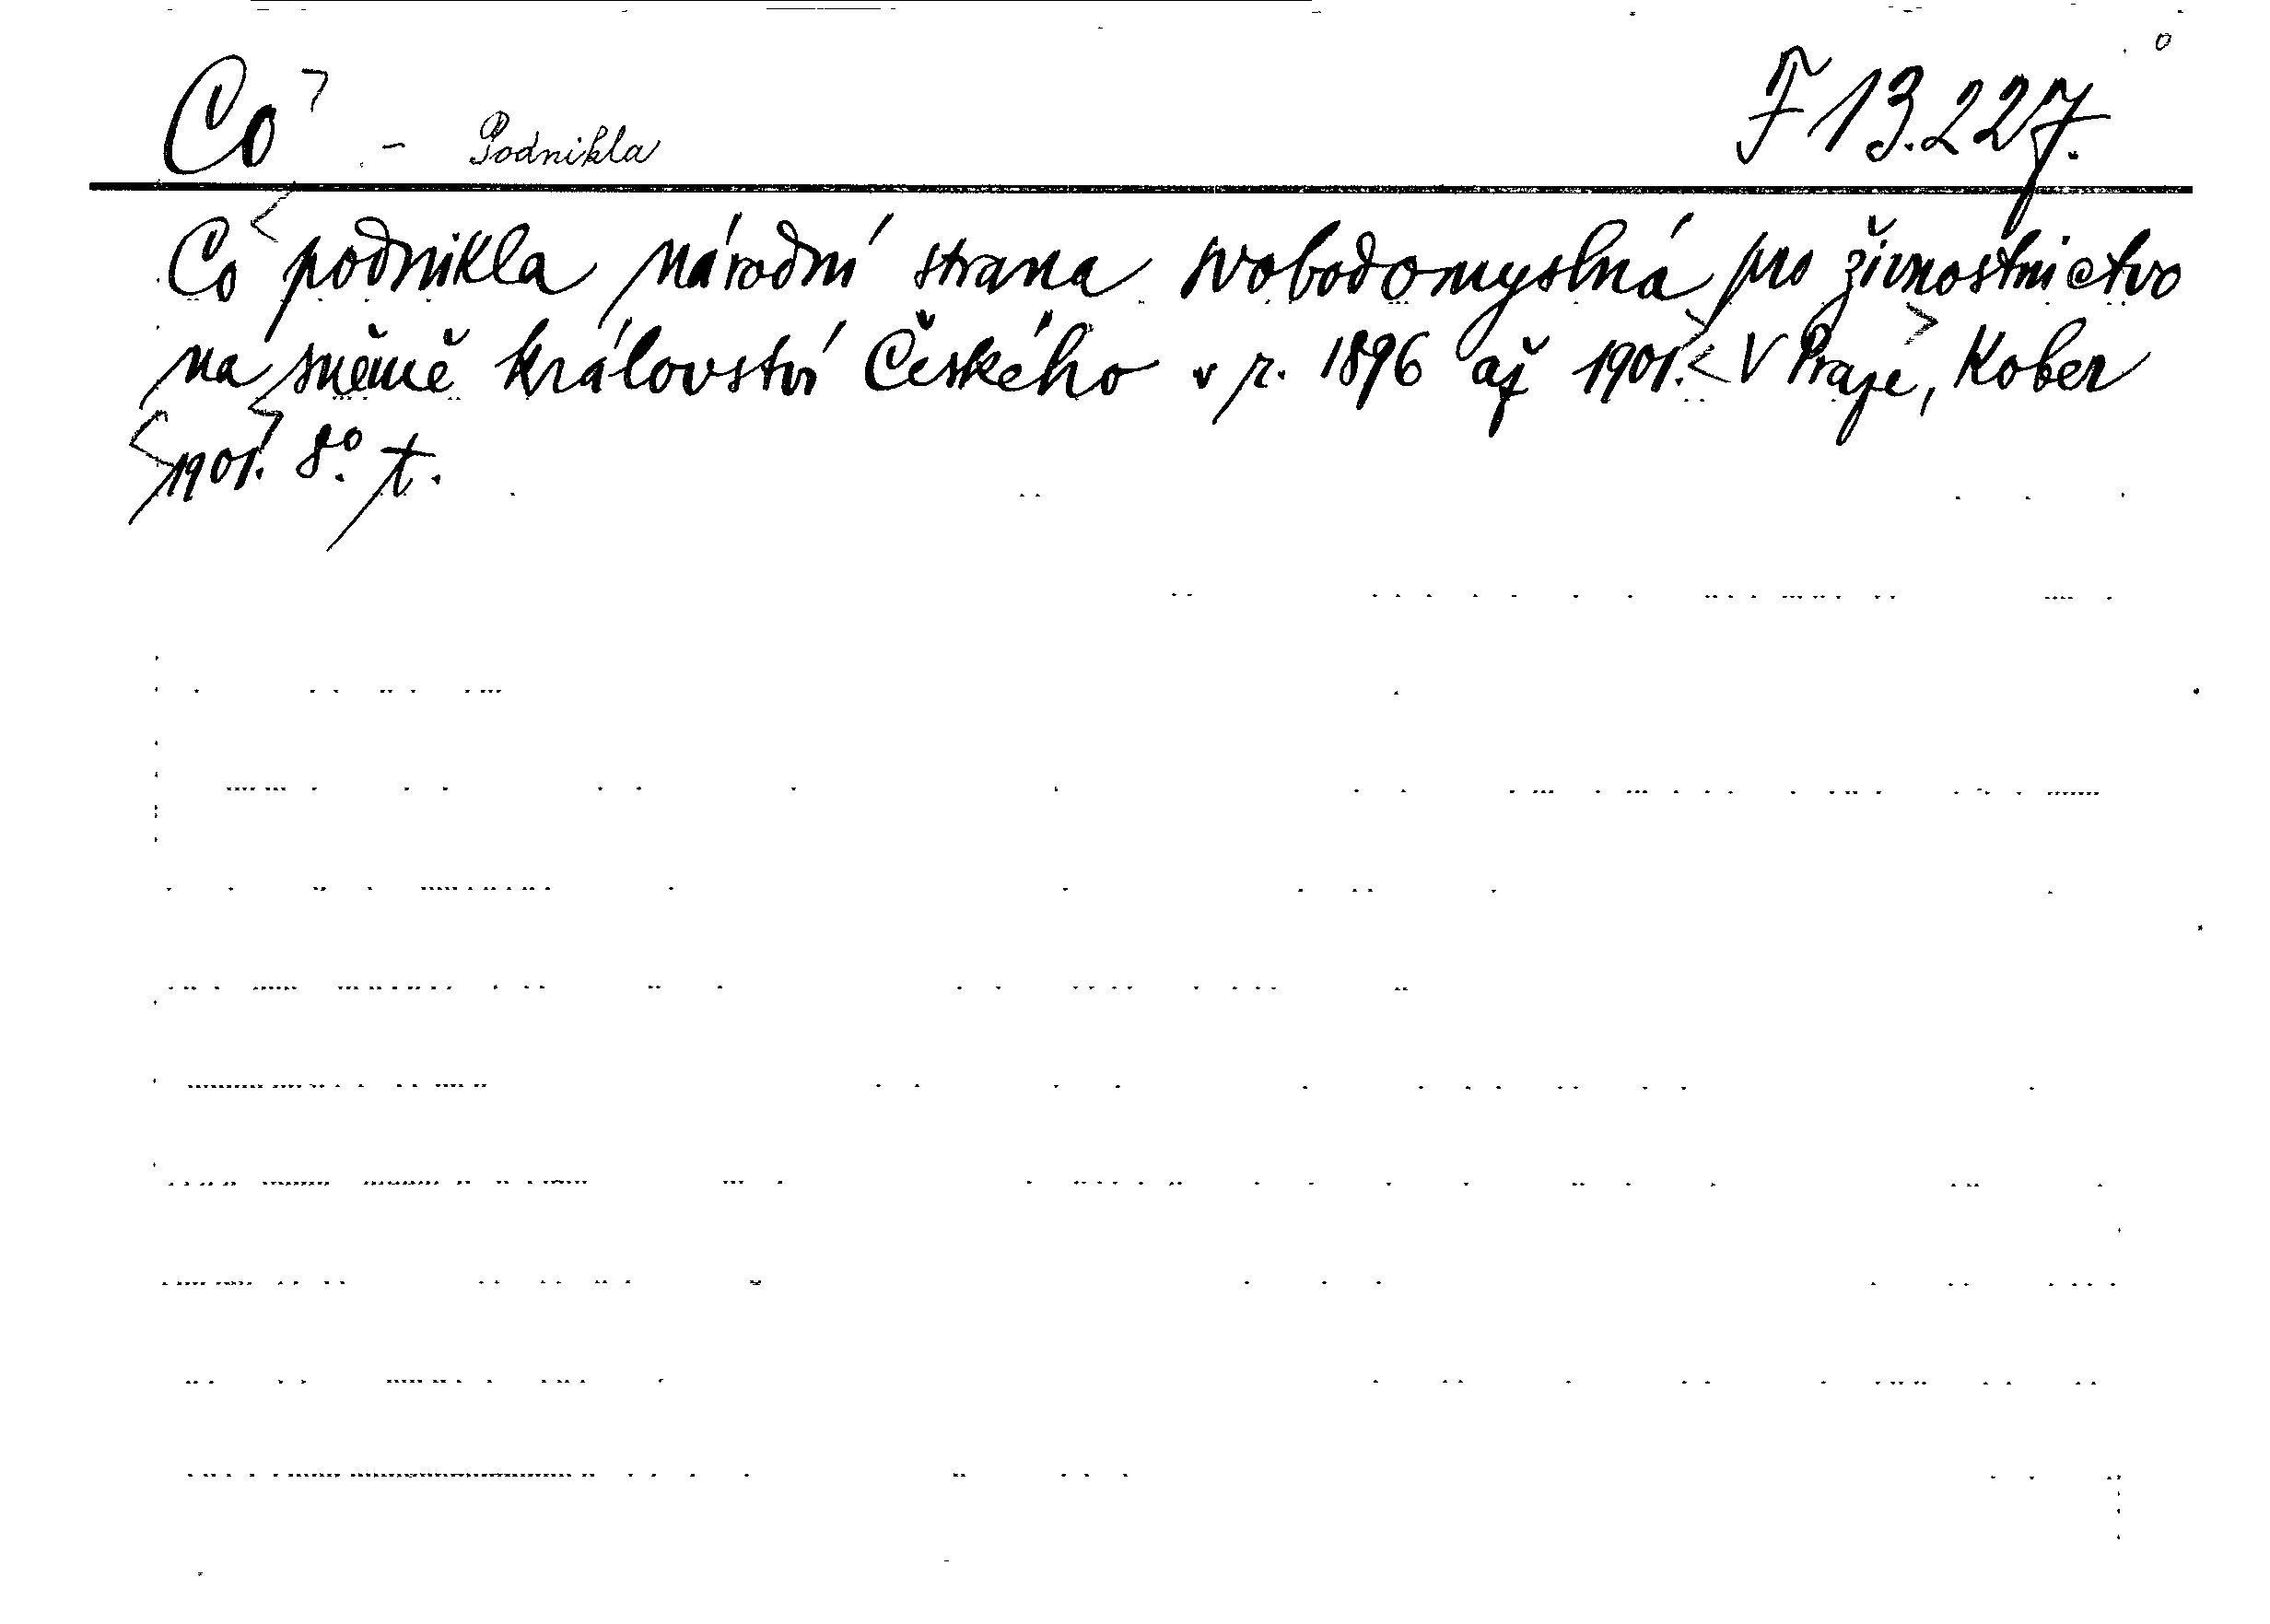 Co - Podnikla F 13.227.
Co podnikla národní strana svobodomyslná pro živnostnictvo
na sněmě království Českého v r. 1896 až 1901. V Praze, Kober
1901. 8°. t.